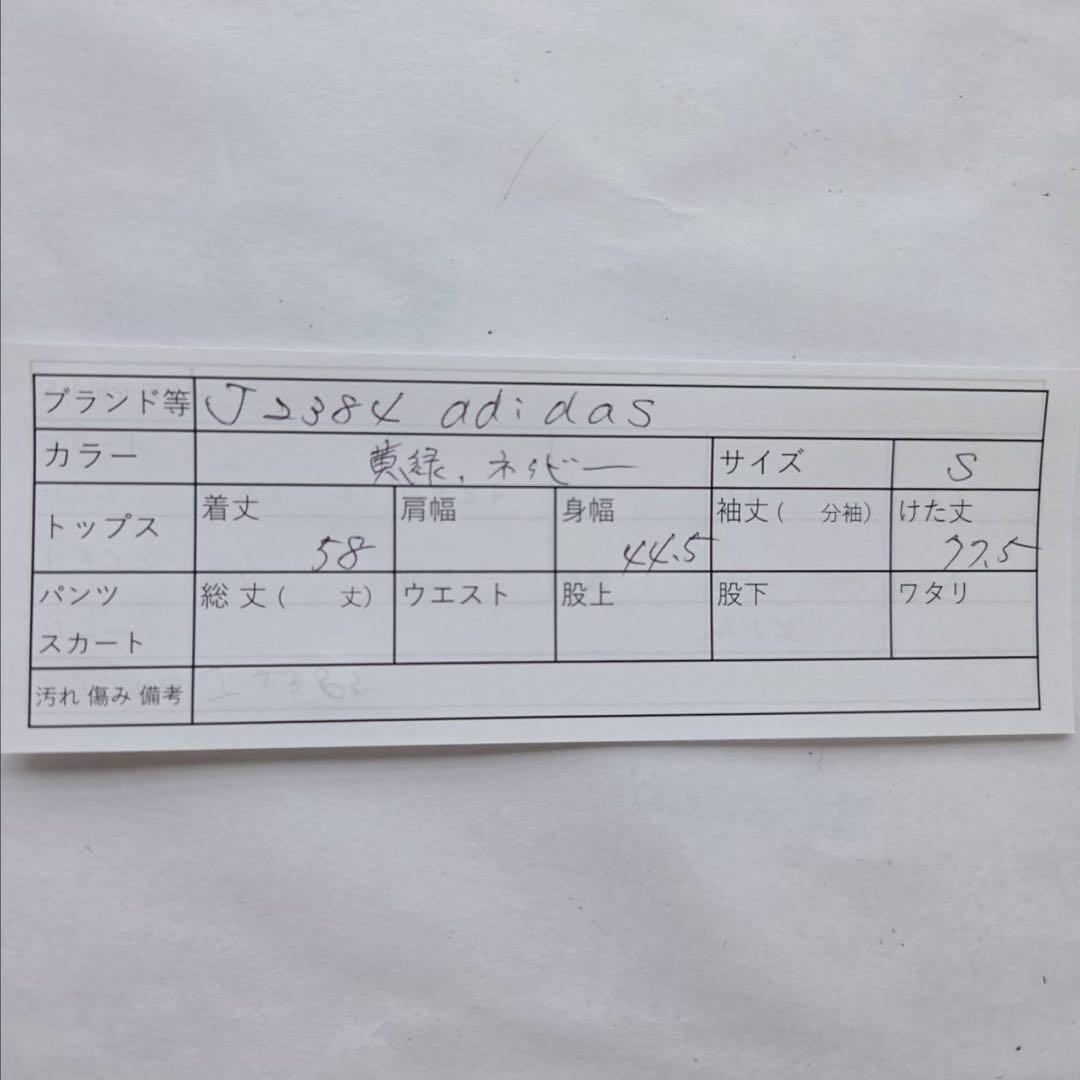 ブランド等 J2384 adidas
カラー 黄緑、ネイビー サイズ S
トップス 着丈 58 肩幅 身幅 44.5 袖丈( 分袖) けた丈 77.5
パンツ 総丈( 丈) ウエスト 股上 股下 ワタリ
スカート
汚れ 傷み 備考